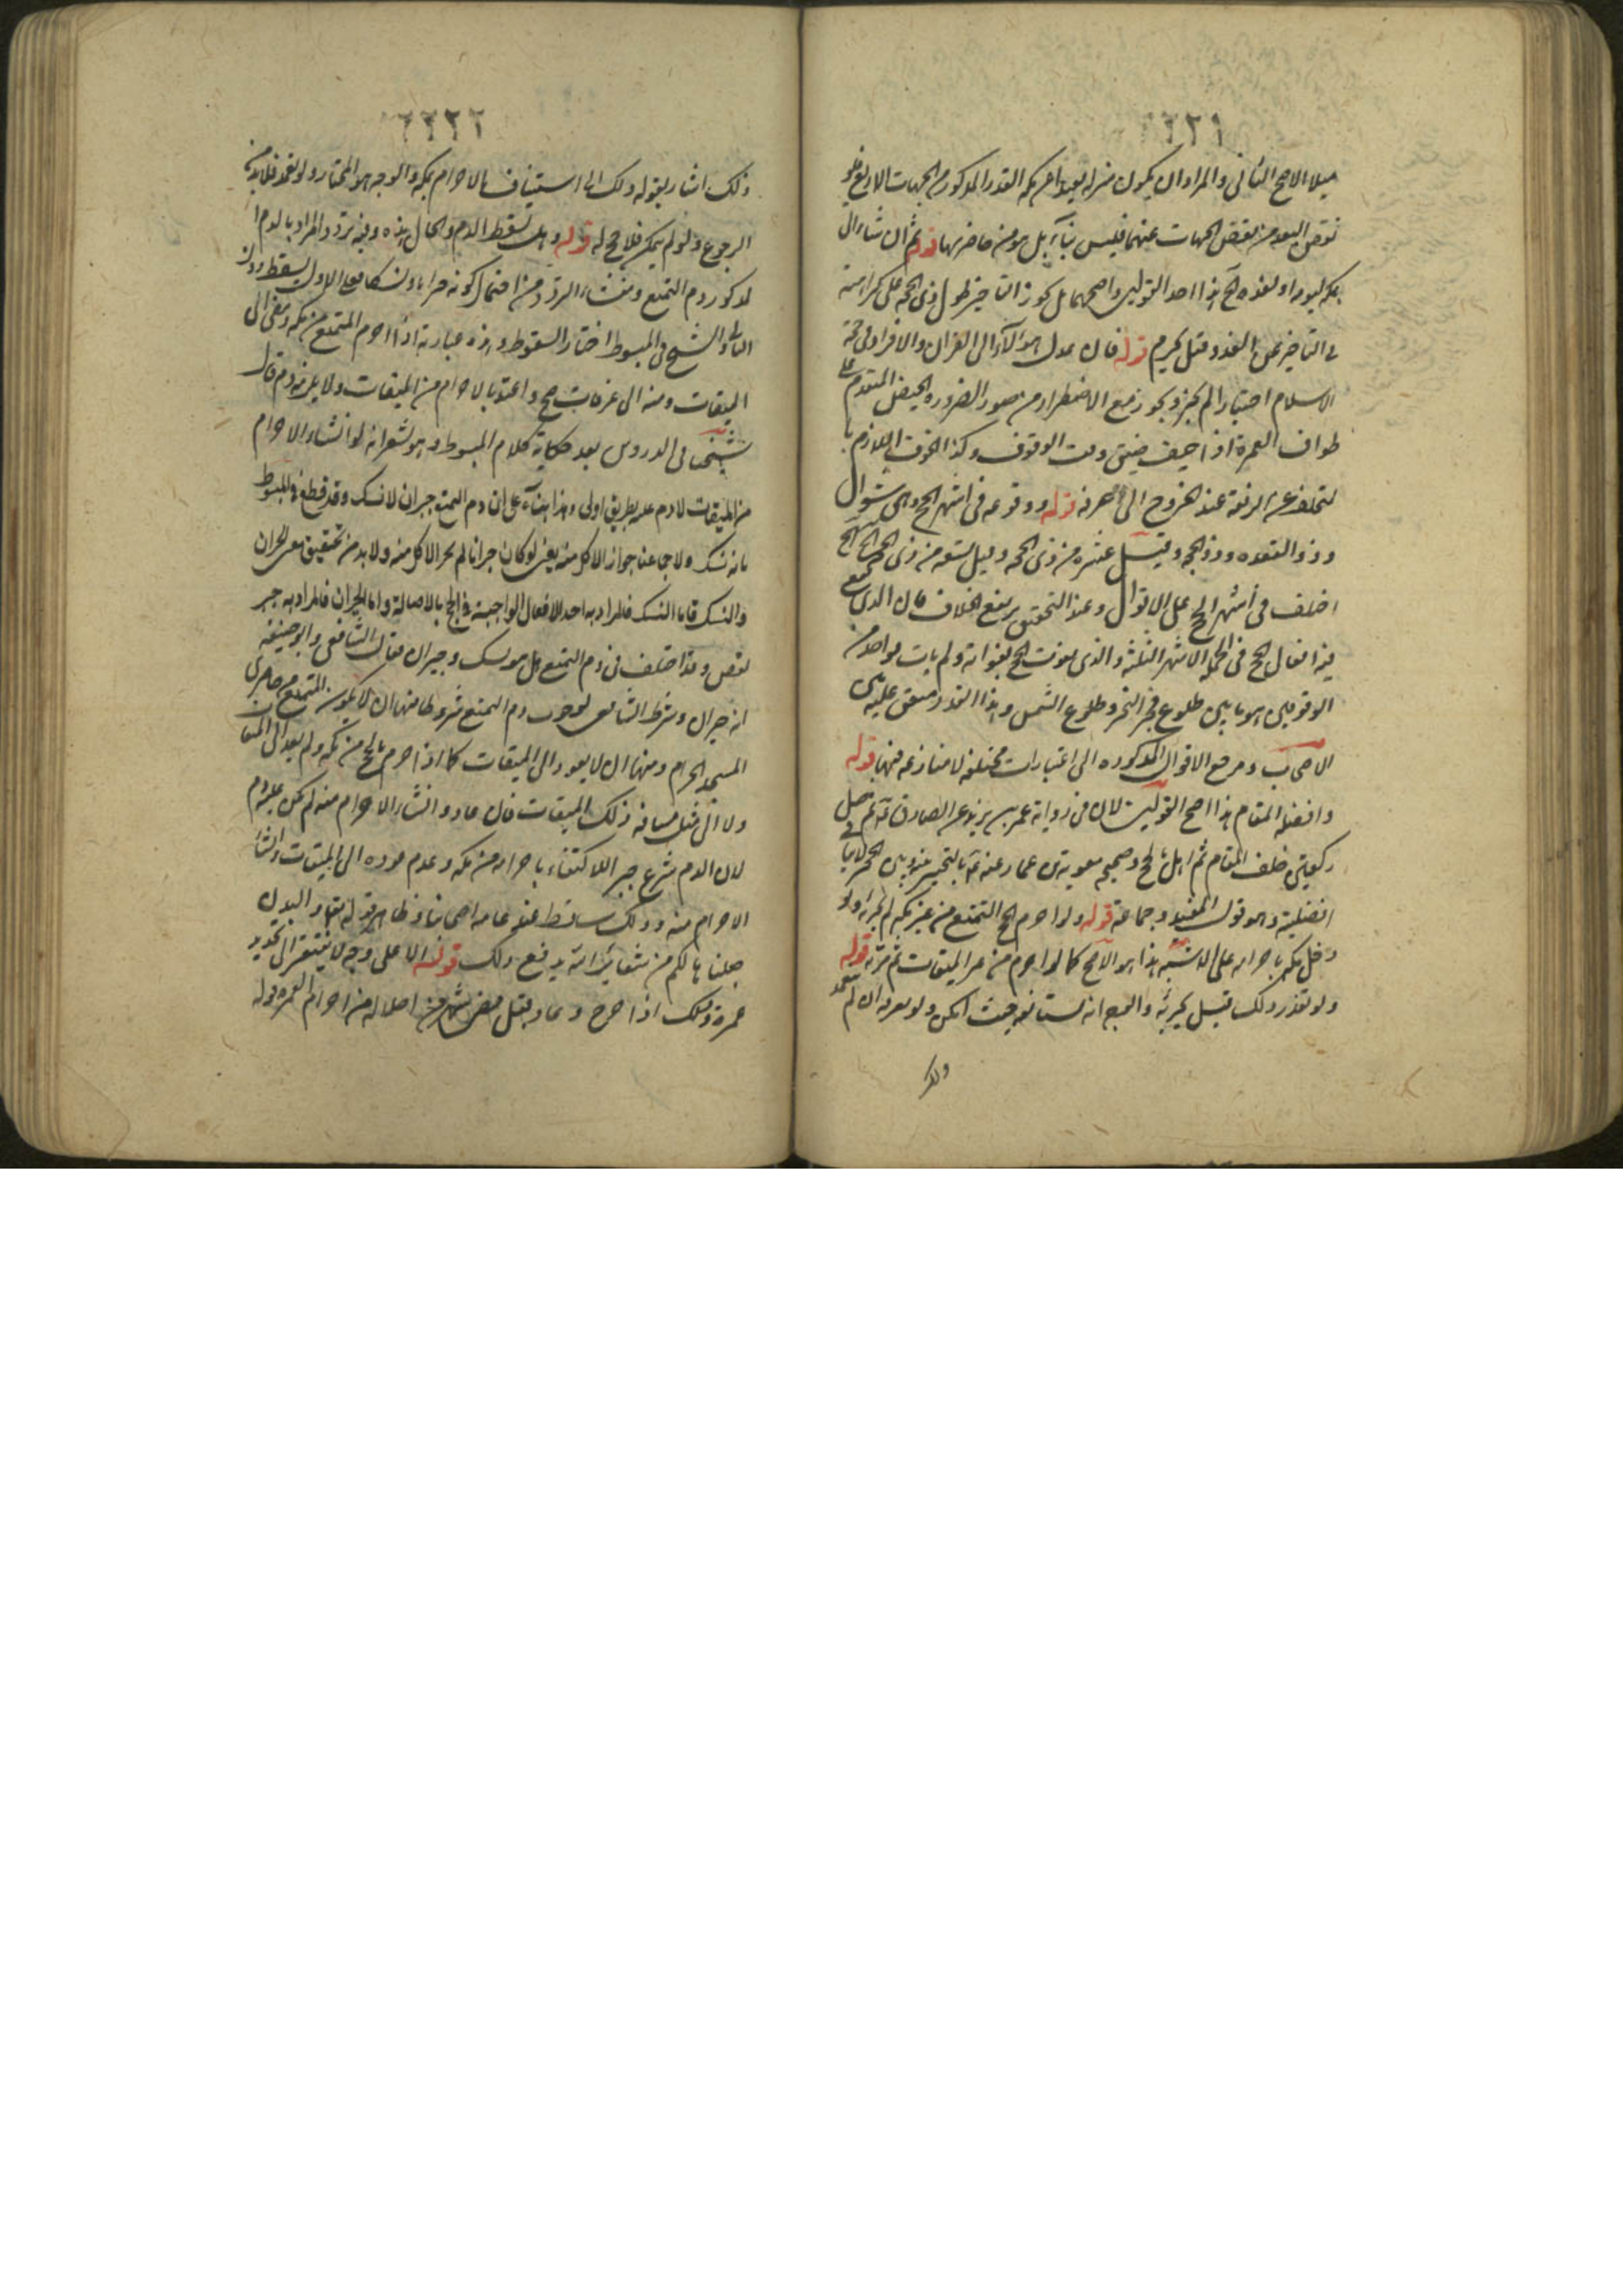 ٢٢١
ميلا الاصح الثانى والمراد ان يكون منزله بعيدا عن مكه القدر المذكور من الجهات الاربع فلو
نقص البعد من بعض الجهات عنهما فليس بناء بل هو من حاضريها قوله ثم ان شاء
بمكه ليومه او لغده هذا احد القولين واصحهما بل يجوز تاخيره طول ذى الحجه على كراهية
فى التاخير عن الغد وقيل يحرم قوله فان عدل هؤلاء الى القران والافراد فى حجة
الاسلام اختيارا لم يجز ويجوز مع الاضطرار من صور الضروره الحيض المتقدم على
طواف العمرة اذا خيف ضيق وقت الوقوف وكذا الخوف اللازم
للتخلف عن الرفقة عند الخروج الى عرفة قوله ووقوعه فى اشهر الحج وهى شوال
وذو القعده وذو الحجه وقيل عشرة من ذى الحجه وقيل تسعه من ذى الحجه
اختلف فى أشهر الحج على الاقوال وعند التحقيق يرتفع الخلاف فان الذى تقع
فيه افعال الحج فى الجملة الاشهر الثلثة والذى يفوت الحج بفواته ولم يات بواحد من
الوقوفين هو ما بين طلوع فجر النحر وطلوع الشمس وهذا القدر متفق عليه بين
الاصحاب ومرجع الاقوال المذكوره الى اعتبارات مختلفه لا منازعه فيها قوله
وافضله المقام هذا اصح القولين لان فى رواية عمر بن يزيد عن الصادق ثم صل
ركعتين خلف المقام ثم اهل بالحج وصحيحه معوية بن عمار عنه بالتخيير بينه وبين الحجر لا ينافى
افضلية وهو قول المفيد وجماعة قوله ولو احرم بحج التمتع من غير مكه لم يجزئه ولو
دخل مكه باحرامه على الاشبه هذا هو الاصح كما لو احرم من غير الميقات ثم مر به قوله
ولو تعذر ذلك قيل يجزئه والوجه انه يستانفه حيث امكن ولو بعرفة ان لم يتعمد
ذلك
٢٢٢
ذلك اشار بقوله ذلك الى استيناف الاحرام بمكه والوجه هو المختار ولو تعمد فلا بد من
الرجوع ولو لم يمكن فلا حج له قوله وهل يسقط الدم والحال هذه وفيه تردد المراد بالدم
المذكور دم التمتع ومنشاء التردد من احتمال كونه جبرانا او نسكا فعلى الاول يسقط دون
الثانى والشيخ فى المبسوط اختار السقوط وهذه عبارته اذا احرم المتمتع من مكه ومضى الى
الميقات ومنه الى عرفات صح واعتد بالاحرام من الميقات ولا يلزمه دم قال
شيخنا فى الدروس بعد حكاية كلام المبسوط وهو يشعر انه لو انشاء الاحرام
من الميقات لا دم عليه بطريق اولى وهذا بناء على ان دم التمتع جبران لا نسك وقد قطع فى المبسوط
بانه نسك ولاجماعنا جواز الاكل منه يعنى لو كان جبرانا لم يجز الاكل منه ولا بد من تحقيق معنى الجبران
والنسك فاما النسك فالمراد به احد الافعال الواجبة فى الحج بالاصالة واما الجبران فالمراد به جبر
نقص وقد اختلف فى دم التمتع هل هو نسك وجبران فقال الشافعى وابو حنيفه
انه جبران وشرط الشافعى لوجوب دم التمتع شروطا منها ان لا يكون المتمتع من حاضرى
المسجد الحرام ومنها ان لا يعود الى الميقات كما اذا احرم بالحج من مكه ولم يعد الى الميقات
ولا الى مثل مسافة ذلك الميقات فان عاد وانشاء الاحرام منه لم يكن عليه دم
لان الدم شرع جبرا للاكتفاء باحرامه من مكه وعدم عوده الى الميقات وانشاء
الاحرام منه وذلك ساقط عند عامه اصحابنا وظاهر قوله تعالى والبدن
جعلناها لكم من شعائر الله يدفع ذلك قوله الا على وجه لا يفتقر الى تجديد
عمرة وذلك اذا خرج وعاد قبل مضى شهر من احلاله من احرام العمره قوله